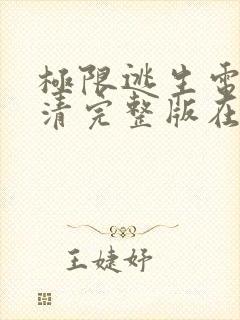 極限逃生電
清完整版在
王婕妤